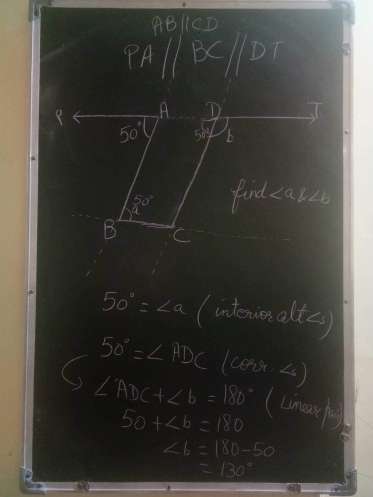 AB||CD
PA || BC || DT
P A D T
50° 50° b
50°
a
find ∠a & ∠b
B C
50° = ∠a (interior alt ∠s)
50° = ∠ADC (corr. ∠s)
∠ADC + ∠b = 180° (Linear pair)
50 + ∠b = 180
∠b = 180-50
= 130°